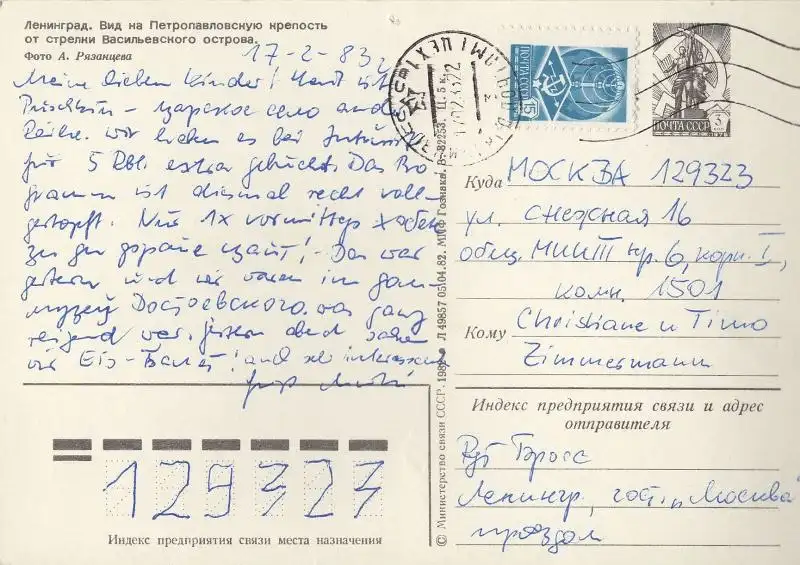 Ленинград. Вид на Петропавловскую крепость
от стрелки Васильевского острова.
Фото А. Рязанцева
17-2-83
Meine lieben Kinder! Heut ist
Puschkin - царское село and.
Reihe. wir haben es bei Inturist
für 5 Rbl. extra gebucht. Das Pro-
gramm ist diesmal recht voll-
gestopft. Nur 1x vormittags хабен
- Das war
gestern und wir waren im дом-
музей Достоевского. was ganz
reizend war. gestern abend sahen
wir Eis-Балет! auch sehr interessant
ПОЧТА СССР
15
ПОЧТА СССР
3
Куда МОСКВА 129323
ул. Снежная 16
общ. МИИТ кр. 6, корп. I,
комн. 1501
Кому Christiane u Timo
Zimmermann
Индекс предприятия связи и адрес
отправителя
Ленингр, гост. „Москва"
проездом
129323
Индекс предприятия связи места назначения
© Министерство связи СССР. 1982. Л 49857 05.04.82. МПФ Гознака. В-82253. Ц. 5 к.